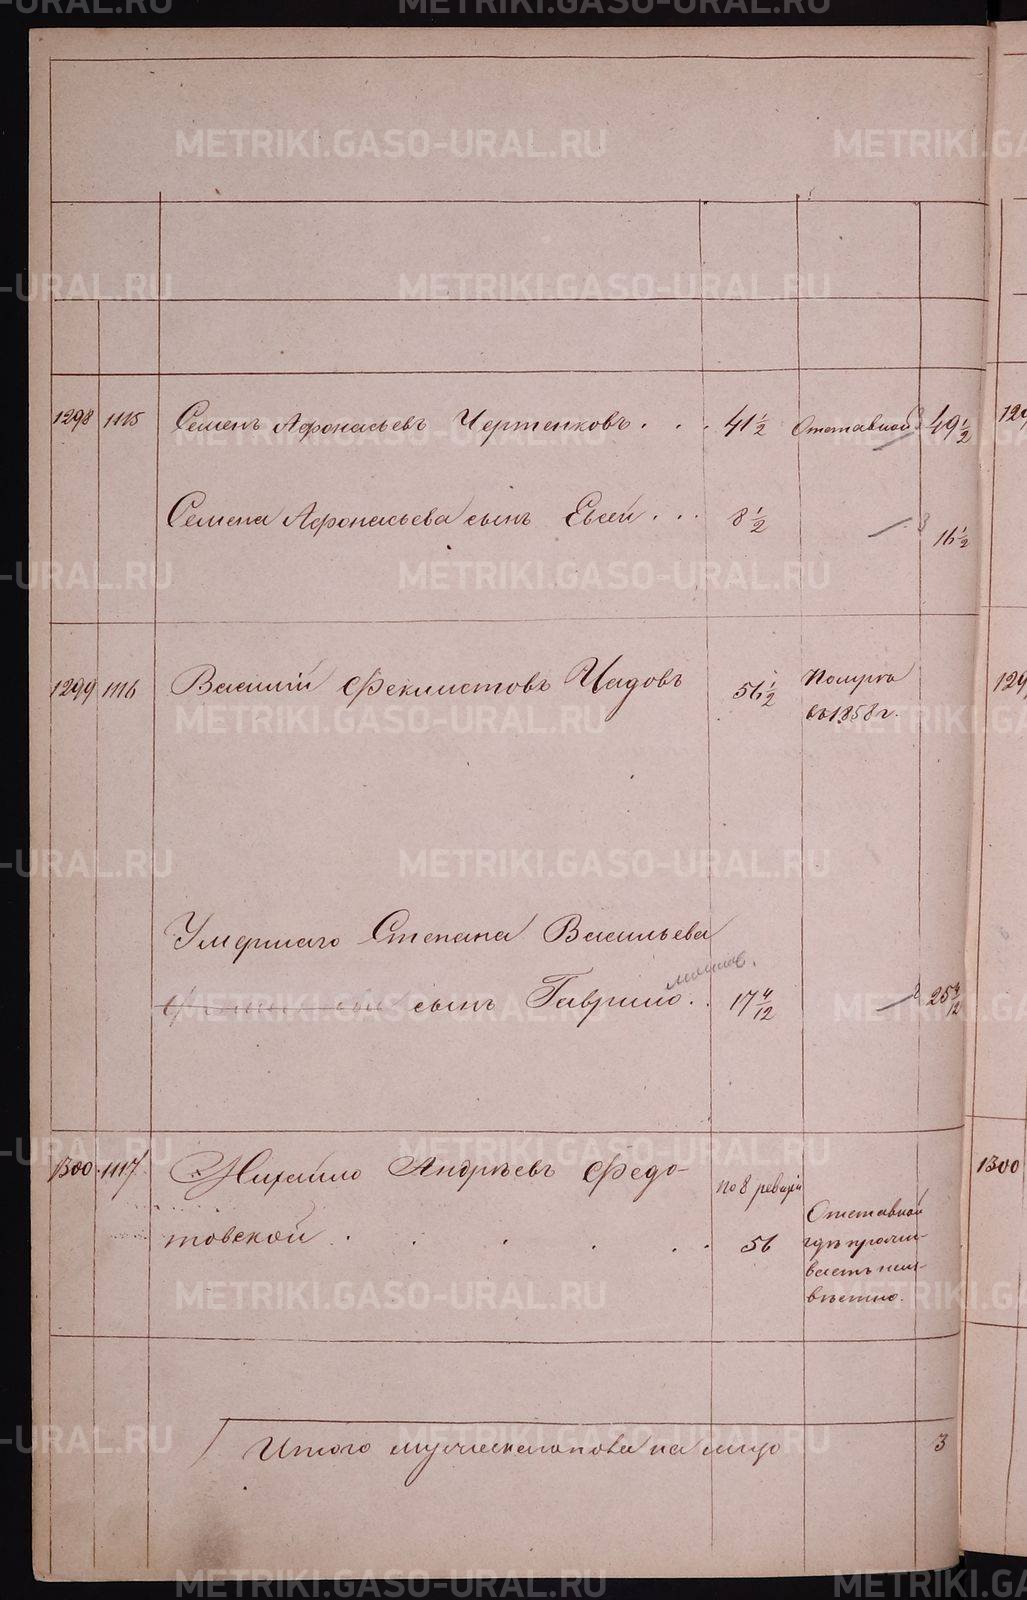 1298 1115 Семенъ Афонасьевъ Чертенковъ . . . 41 1/2 Отставной 49 1/2
Семена Афонасьева сынъ Евсей . . . 8 1/2 16 1/2
1299 1116 Василій Феклистовъ Чадовъ 56 1/2 Померъ
въ 1858 г.
Умершаго Степана Васильева
сынъ Гаврило . . 17 4/12 25 4/12
1300 1117 Михайло Андреевъ Федо- по 8 ревизіи
товской . . . . . . 56 Отставной
гдѣ прожи-
ваетъ неиз-
вѣстно.
Итого мужеска пола на лицо 3
1300
METRIKI.GASO-URAL.RU